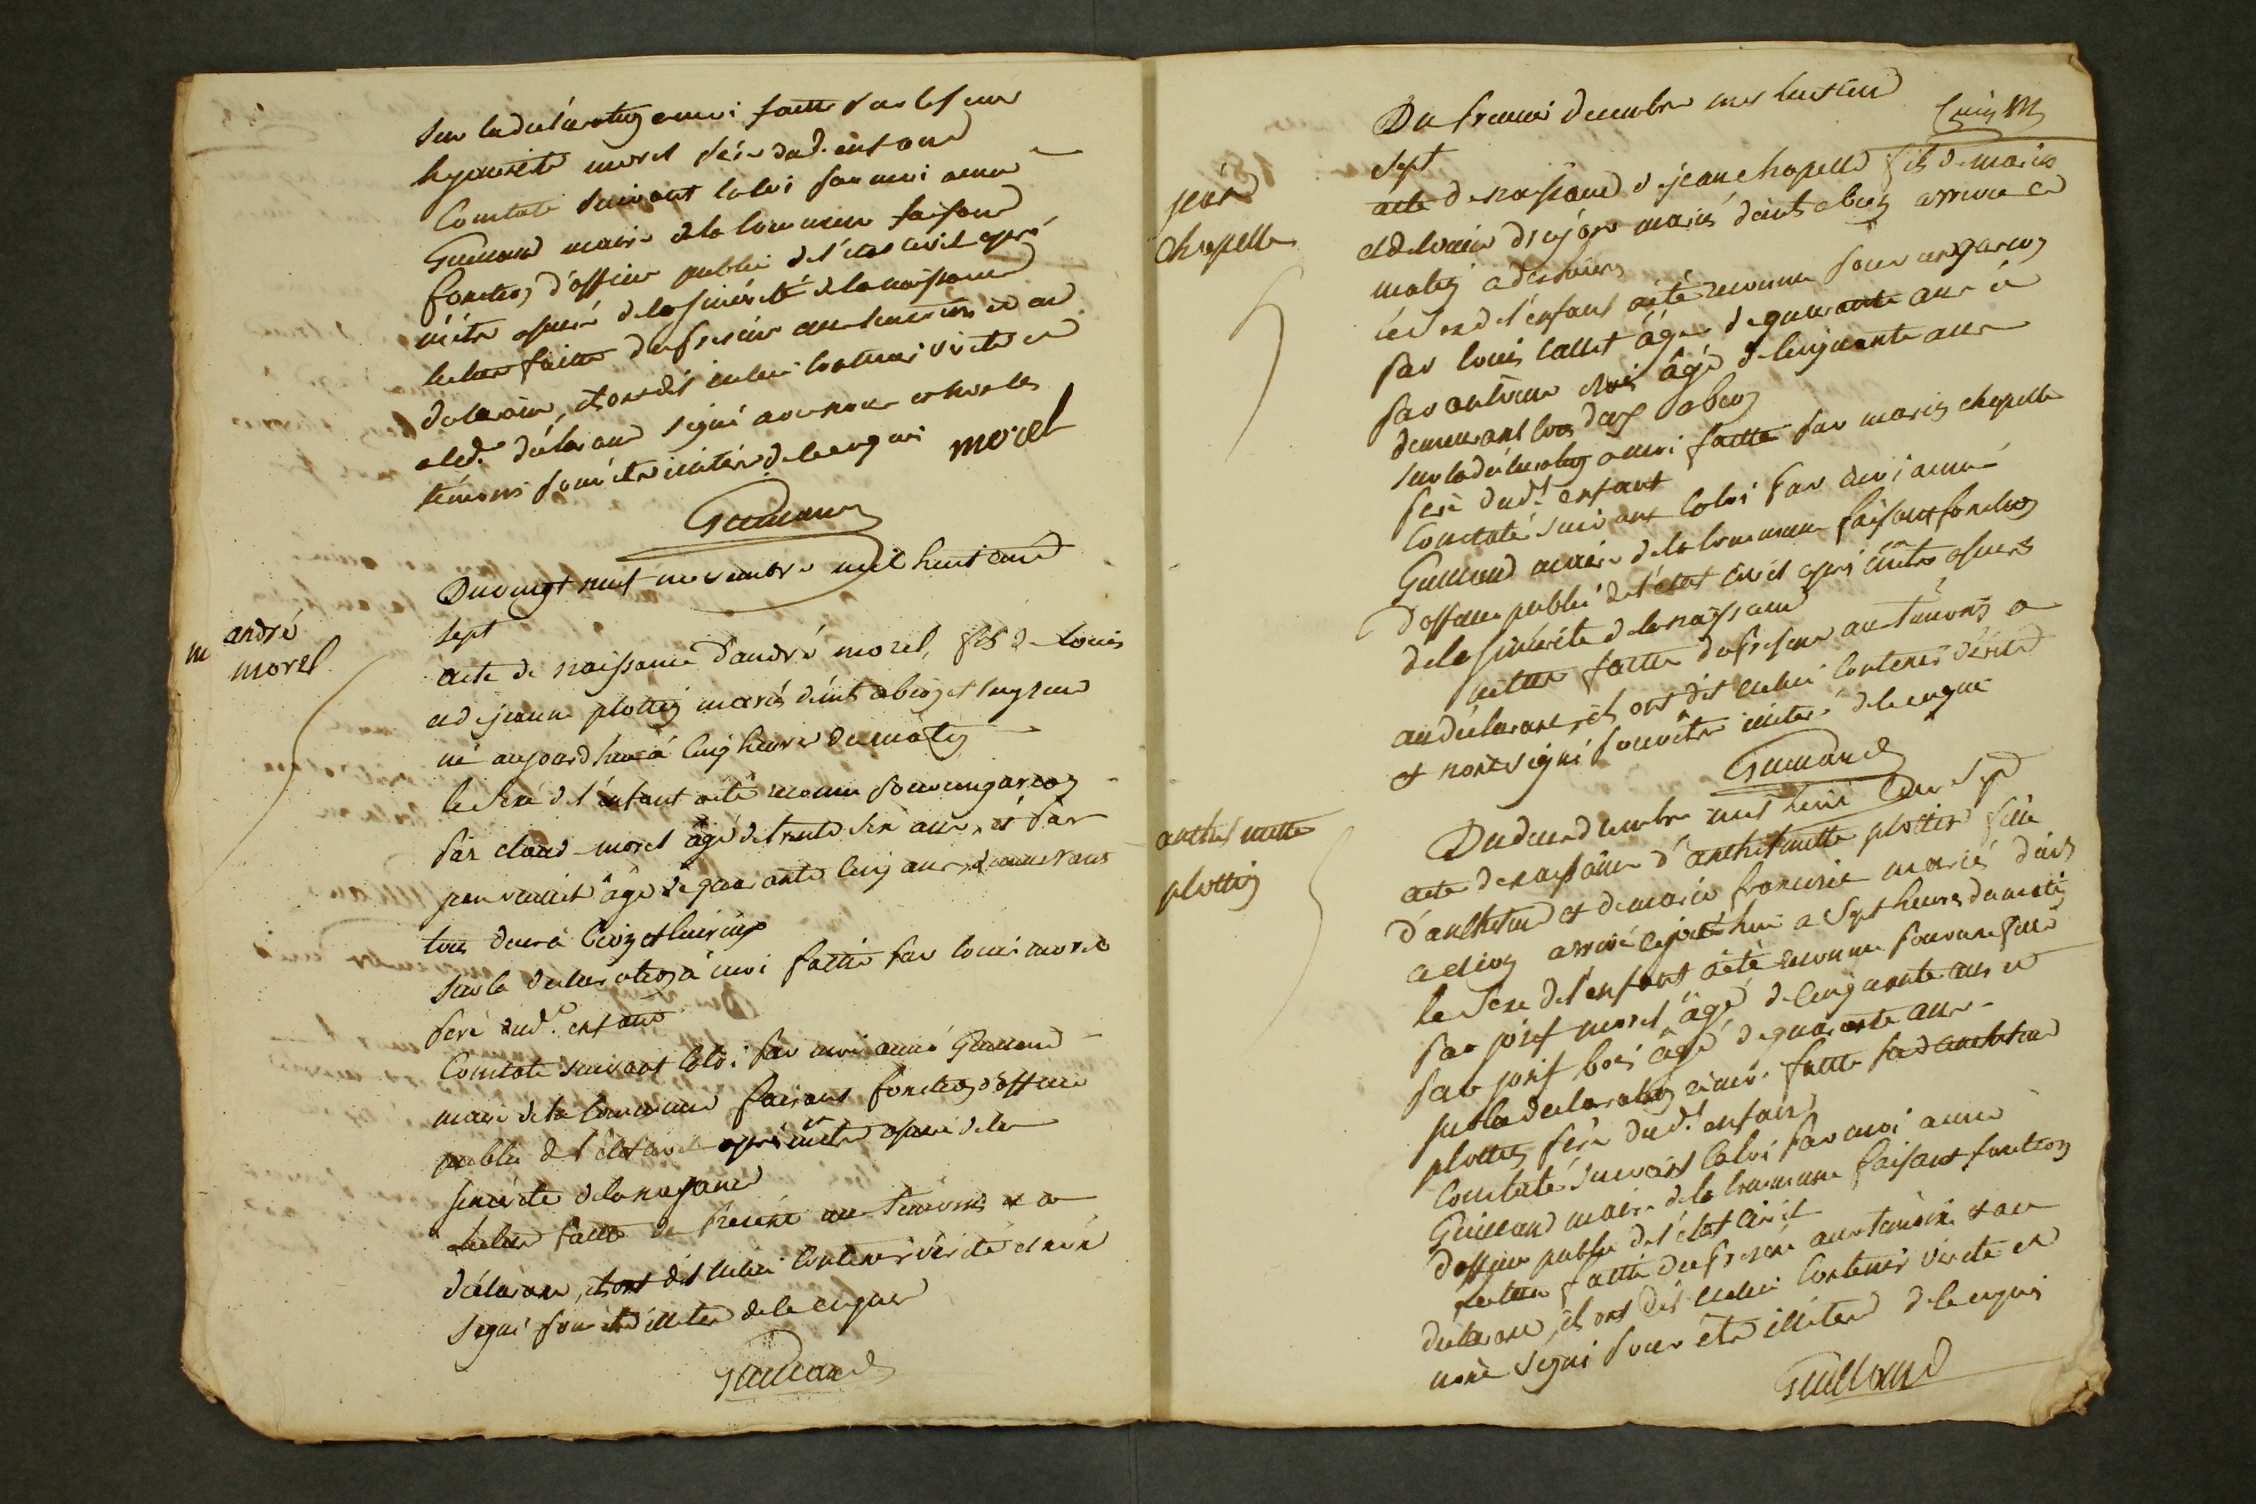 Sur la déclaration à moi faitte par le sieur
hyacinte morel père dud. enfant
Constaté suivant la loi par moi aimé
Guilland maire de la commune faisand
fonction d'officier public de l'état civil après
m'être assuré de la sincérité de la naissance
lecture faitte du présent aux témoins et au
déclarant, ils ont dit icelui contenir vérité et
a led. déclarant signé avec nous et non les
témoins pour être illitéré de ce enquis morel
Guilland
Du vingt neuf novembre mil huit cend
sept
andré
morel
acte de naissance d'andré morel, fils de Louis
et de jeanne plottin mariés dants
né aujourd'hui à cinq heures du matin
le sexe de l'enfant a été reconnu pour un garcon
par claud morel âgé de trente six ans, et par
âgé de quarante cinq ans, demeurant
tous deux à
Sur la déclaration à moi faitte par louis morel
père dud. enfand
Constaté suivant la loi par moi aimé Guilland
maire de la commune faisant fonction d'officier
public de l'état civil après m'être assuré de la
sincérité de la naissance
lecture faitte du présent aux témoins et au
déclarant, ils ont dit icelui contenir vérité et non
signé pour être illitéré de ce enquis
Guilland
Du premier décembre mil huit cend
sept
jean
chapelle
acte de naissance de jean chapelle fils de marin
mariés dants arrivé ce
matin à
le sexe de l'enfant a été reconnu pour un garcon
par louis callet âgé de quarante ans et
par antoine âgé de cinquante ans
demeurant tous deux
sur la déclaration à moi faitte par marin chapelle
père dud. enfant
Constaté suivant la loi par moi aimé
Guilland maire de la commune faisant fonction
d'officier public de l'état civil après m'être assuré
de la sincérité de la naissance
lecture faitte du présent aux témoins et
au déclarant, ils ont dit icelui contenir vérité
et non signé pour être illitéré de ce enquis
Guilland
Du deux décembre mil huit cend sept
anthelmette
plottin
acte de naissance d'anthelmette plottin fille
d'anthelme et de marie francoise mariés dants
arrivé aujourd'hui a sept heures du matin
le sexe de l'enfant a été reconnu pour une fille
par josef morel âgé de cinquante ans et
par josef bois âgé de quarante ans
sur la déclaration à moi faitte par anthelme
plottin père dud. enfant
Constaté suivant la loi par moi aimé
Guilland maire de la commune faisant fonction
d'officier public de l'état civil
lecture faitte du présent aux témoins et au
déclarant, ils ont dit icelui contenir vérité et
non signé pour être illitéré de ce enquis
Guilland